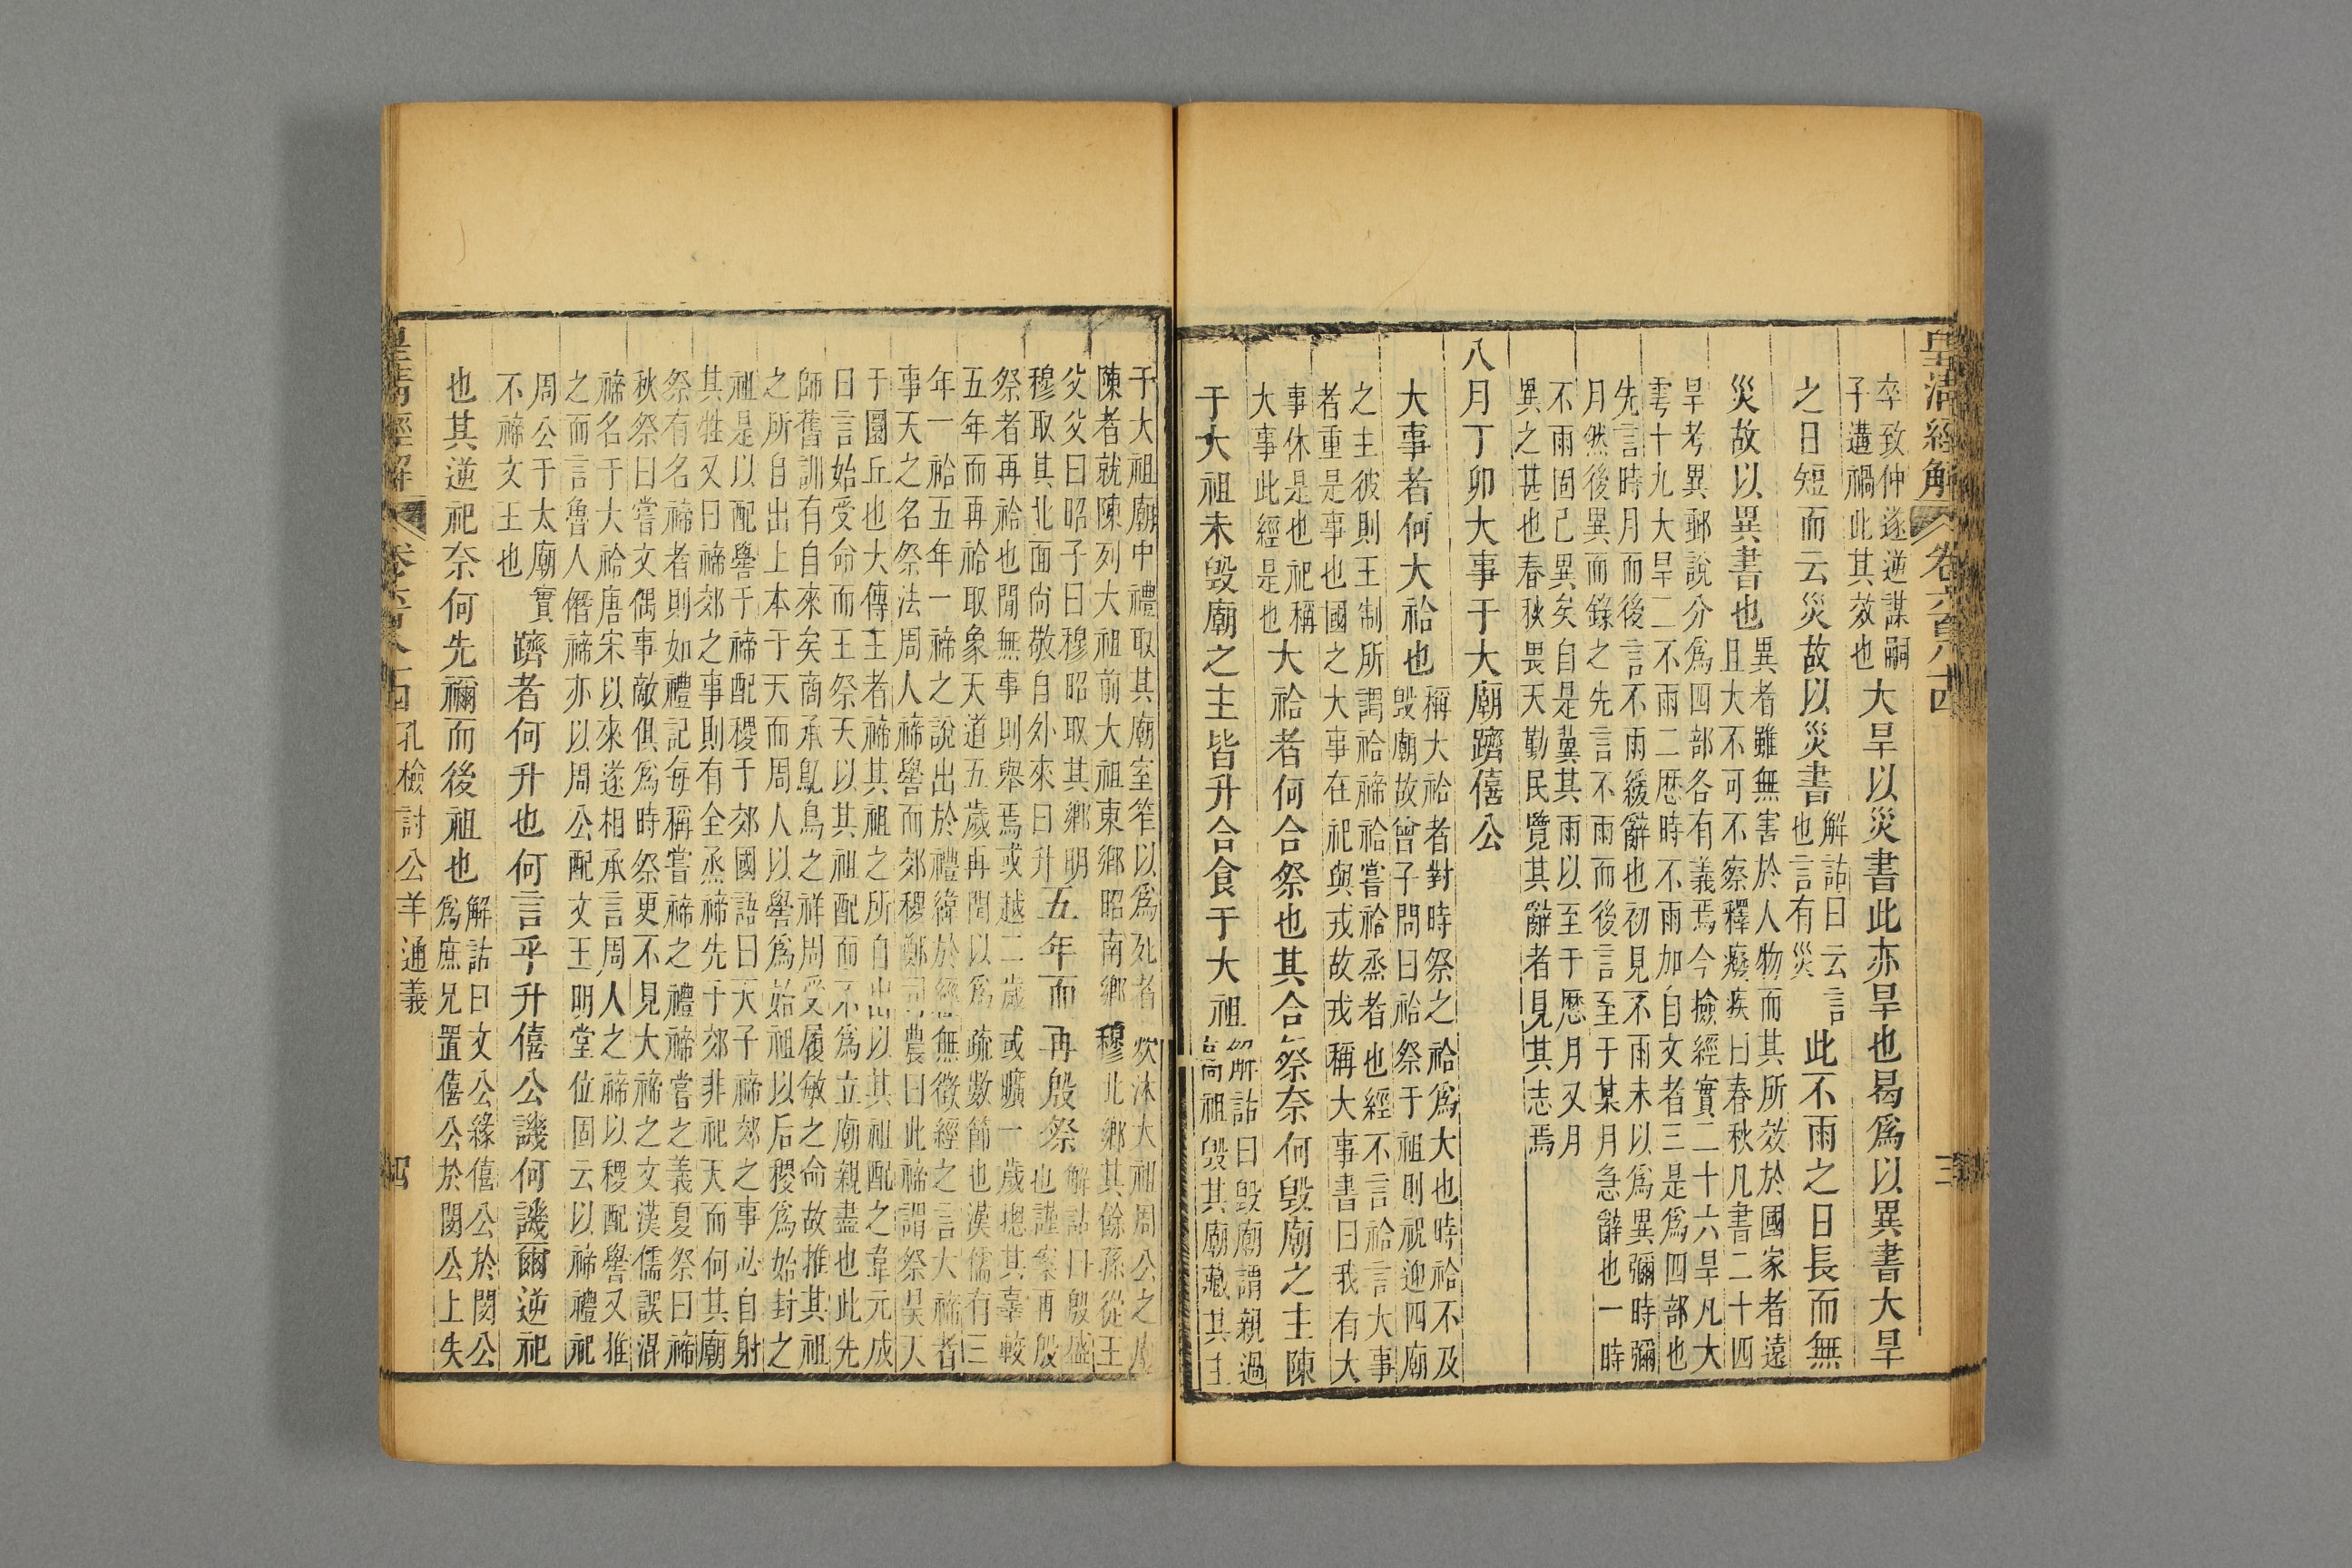 皇清經解 卷六百八十四 三
卒致仲遂逆謀嗣
子遘禍此其效也
大旱以災書此亦旱也曷爲以異書大旱
之日短而云災故以災書
解詁曰云言
也言有災
此不雨之日長而無
災故以異書也
異者雖無害於人物而其所效於國家者遠
且大不可不察釋癈疾曰春秋凡書二十四
旱考異郵說分爲四部各有義焉今檢經實二十六旱凡大
雩十九大旱二不雨二歷時不雨加自文者三是爲四部也
先言時月而後言不雨緩辭也初見不雨未以爲異彌時彌
月然後異而錄之先言不雨而後言至于某月急辭也一時
不雨固已異矣自是冀其雨以至于歷月又月
異之甚也春秋畏天勤民覽其辭者見其志焉
八月丁卯大事于大廟躋僖公
大事者何大祫也
稱大祫者對時祭之祫爲大也時祫不及
毁廟故曾子問曰祫祭于祖則祝迎四廟
之主彼則王制所謂祫禘祫嘗祫烝者也經不言祫言大事
者重是事也國之大事在祀與戎故戎稱大事書曰我有大
事休是也祀稱
大事此經是也
大祫者何合祭也其合祭奈何毁廟之主陳
于大祖未毁廟之主皆升合食于大祖
解詁曰毁廟謂親過
高祖毁其廟藏其主
于大祖廟中禮取其廟室笮以爲死者炊沐大祖周公之廟
陳者就陳列大祖前大祖東鄉昭南鄉穆北鄉其餘孫從王
父父曰昭子曰穆昭取其鄉明
穆取其北面尚敬自外來曰升
五年而再殷祭
解詁曰殷盛
也謹案再殷
祭者再祫也閒無事則舉焉或越二歲或曠一歲摠其辜較
五年而再祫取象天道五歲再閏以爲疏數節也漢儒有三
年一祫五年一禘之說出於禮緯於經無徵經之言大禘者
事天之名祭法周人禘嚳而郊稷鄭司農曰此禘謂祭昊天
于圜丘也大傳王者禘其祖之所自出以其祖配之韋元成
曰言始受命而王祭天以其祖配而不爲立廟親盡也此先
師舊訓有自來矣商承鳦鳥之祥周受履敏之命故推其祖
之所自出上本于天而周人以嚳爲始祖以后稷爲始封之
祖是以配嚳于禘配稷于郊國語曰天子禘郊之事必自射
其牲又曰禘郊之事則有全烝禘先于郊非祀天而何其廟
祭有名禘者則如禮記每稱嘗禘之禮禘嘗之義夏祭曰禘
秋祭曰嘗文偶事敵俱爲時祭更不見大禘之文漢儒誤混
禘名于大祫唐宋以來遂相承言周人之禘以稷配嚳又推
之而言魯人僭禘亦以周公配文王明堂位固云以禘禮祀
周公于太廟實
不禘文王也
躋者何升也何言乎升僖公譏何譏爾逆祀
也其逆祀奈何先禰而後祖也
解詁曰文公緣僖公於閔公
爲庶兄置僖公於閔公上失
皇清經解 卷六百八十四 孔檢討公羊通義 四